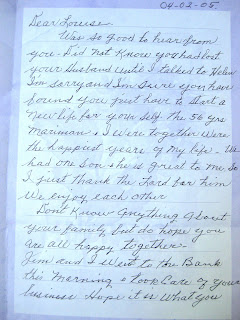 04-03-05
Dear Louise
Was so good to hear from
you - Did not know you had lost
your Husband until I talked to Helen
I'm sorry and I'm sure you have
found you just have to start a
new life for your self. The 56 yrs
& I were together were
the happiest years of my life - We
had one son she is great to me So
I just thank the Lord for him
We enjoy each other
Dont Know anything about
your family but do hope you
are all happy together -
Jim and I went to the Bank
this morning & took care of your
business Hope it is What you